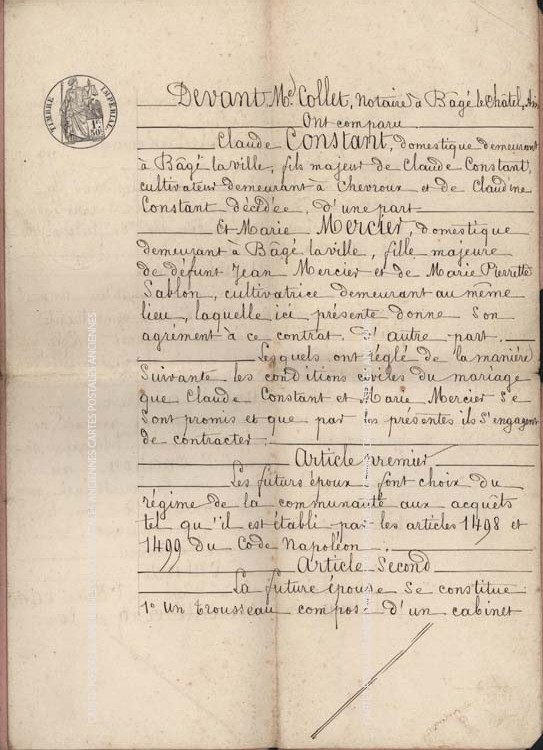 TIMBRE IMPERIAL
1F 50C
Devant Me Collet, Notaire à Bâgé le Châtel, Ain
Ont comparu
Claude Constant, domestique demeurant
à Bâgé la ville, fils majeur de Claude Constant,
cultivateur demeurant à Chevroux et de Claudine
Constant décédée, d'une part
Et Marie Mercier, domestique
demeurant à Bâgé la ville, fille majeure
de défunt Jean Mercier et de Marie Pierrette
Sablon, cultivatrice demeurant au même
lieu, laquelle ici présente donne son
agrément à ce contrat. D'autre part.
Lesquels ont réglé de la manière
suivante les conditions civiles du mariage
que Claude Constant et Marie Mercier se
sont promis et que par les présentes ils s'engagent
de contracter.
Article premier
Les futurs époux font choix du
régime de la communauté aux acquêts
tel qu'il est établi par les articles 1498 et
1499 du Code Napoléon.
Article Second
La future épouse se constitue
1° Un trousseau composé d'un cabinet
CARTES POSTALES ANCIENNES